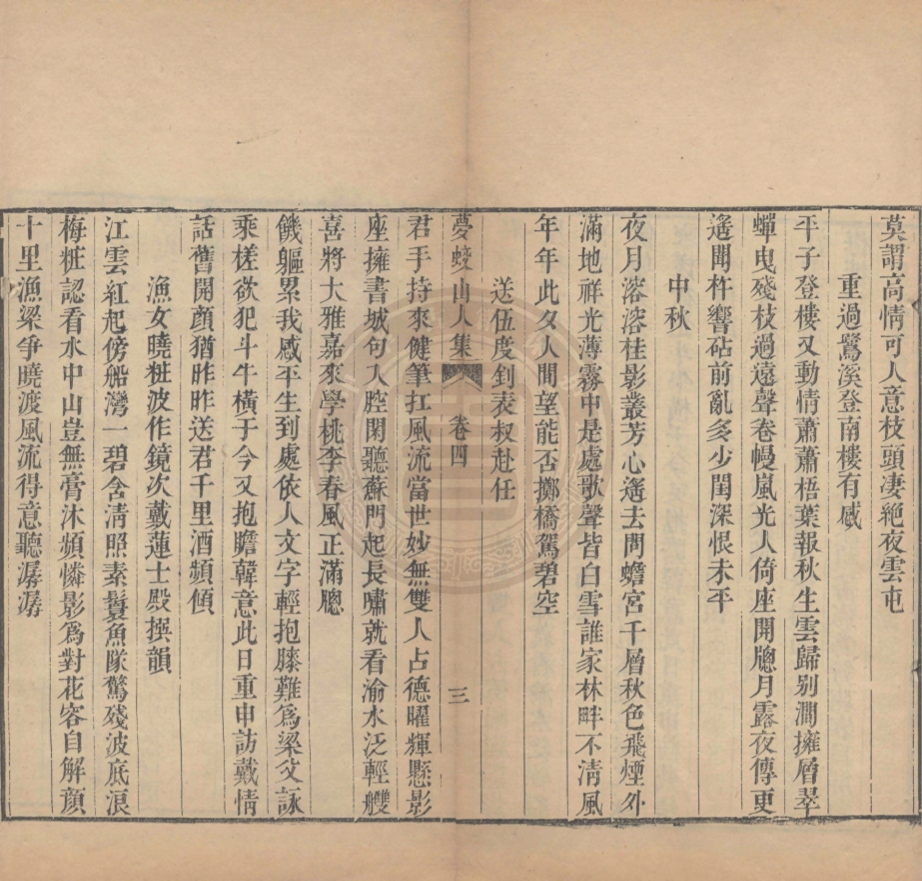 莫謂高情可人意枝頭凄絶夜雲屯
重過鷺溪登南樓有感
平子登樓又動情蕭蕭梧葉報秋生雲歸別澗擁層翠
蟬曳殘枝過遠聲卷幔嵐光人倚座開牕月露夜傳更
遙聞杵響砧前亂多少閨深恨未平
中秋
夜月溶溶桂影叢芳心遙去問蟾宮千層秋色飛煙外
滿地祥光薄霧中是處歌聲皆白雪誰家林畔不清風
年年此夕人間望能否擲橋駕碧空
送伍度釗表叔赴任
夢蛟山人集 卷四 三
君手持來健筆扛風流當世妙無雙人占德曜輝懸影
座擁書城句入腔閑聽蘇門起長嘯就看渝水泛輕艭
喜將大雅嘉來學桃李春風正滿牕
饑軀累我感平生到處依人文字輕抱膝難爲梁父詠
乘槎欲犯斗牛橫于今又抱瞻韓意此日重申訪戴情
話舊開顔猶昨昨送君千里酒頻傾
漁女曉粧波作鏡次戴蓮士殿撰韻
江雲紅起傍船灣一碧含清照素鬟魚隊驚殘波底浪
梅粧認看水中山豈無膏沐頻憐影爲對花容自解顔
十里漁梁爭曉渡風流得意聽潺潺